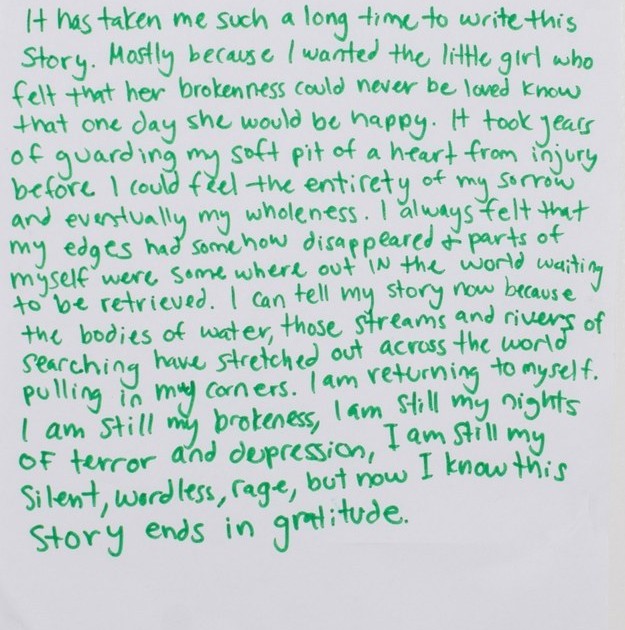 It has taken me such a long time to write this
Story. Mostly because I wanted the little girl who
felt that her brokenness could never be loved know
that one day she would be happy. It took years
of guarding my soft pit of a heart from injury
before I could feel the entirety of my sorrow
and eventually my wholeness. I always felt that
my edges had somehow disappeared & parts of
myself were some where out in the world waiting
to be retrieved. I can tell my story now because
the bodies of water, those streams and rivers of
searching have stretched out across the world
pulling in my corners. I am returning to myself.
I am still my brokeness, I am still my nights
of terror and depression, I am still my
Silent, wordless, rage, but now I know this
Story ends in gratitude.